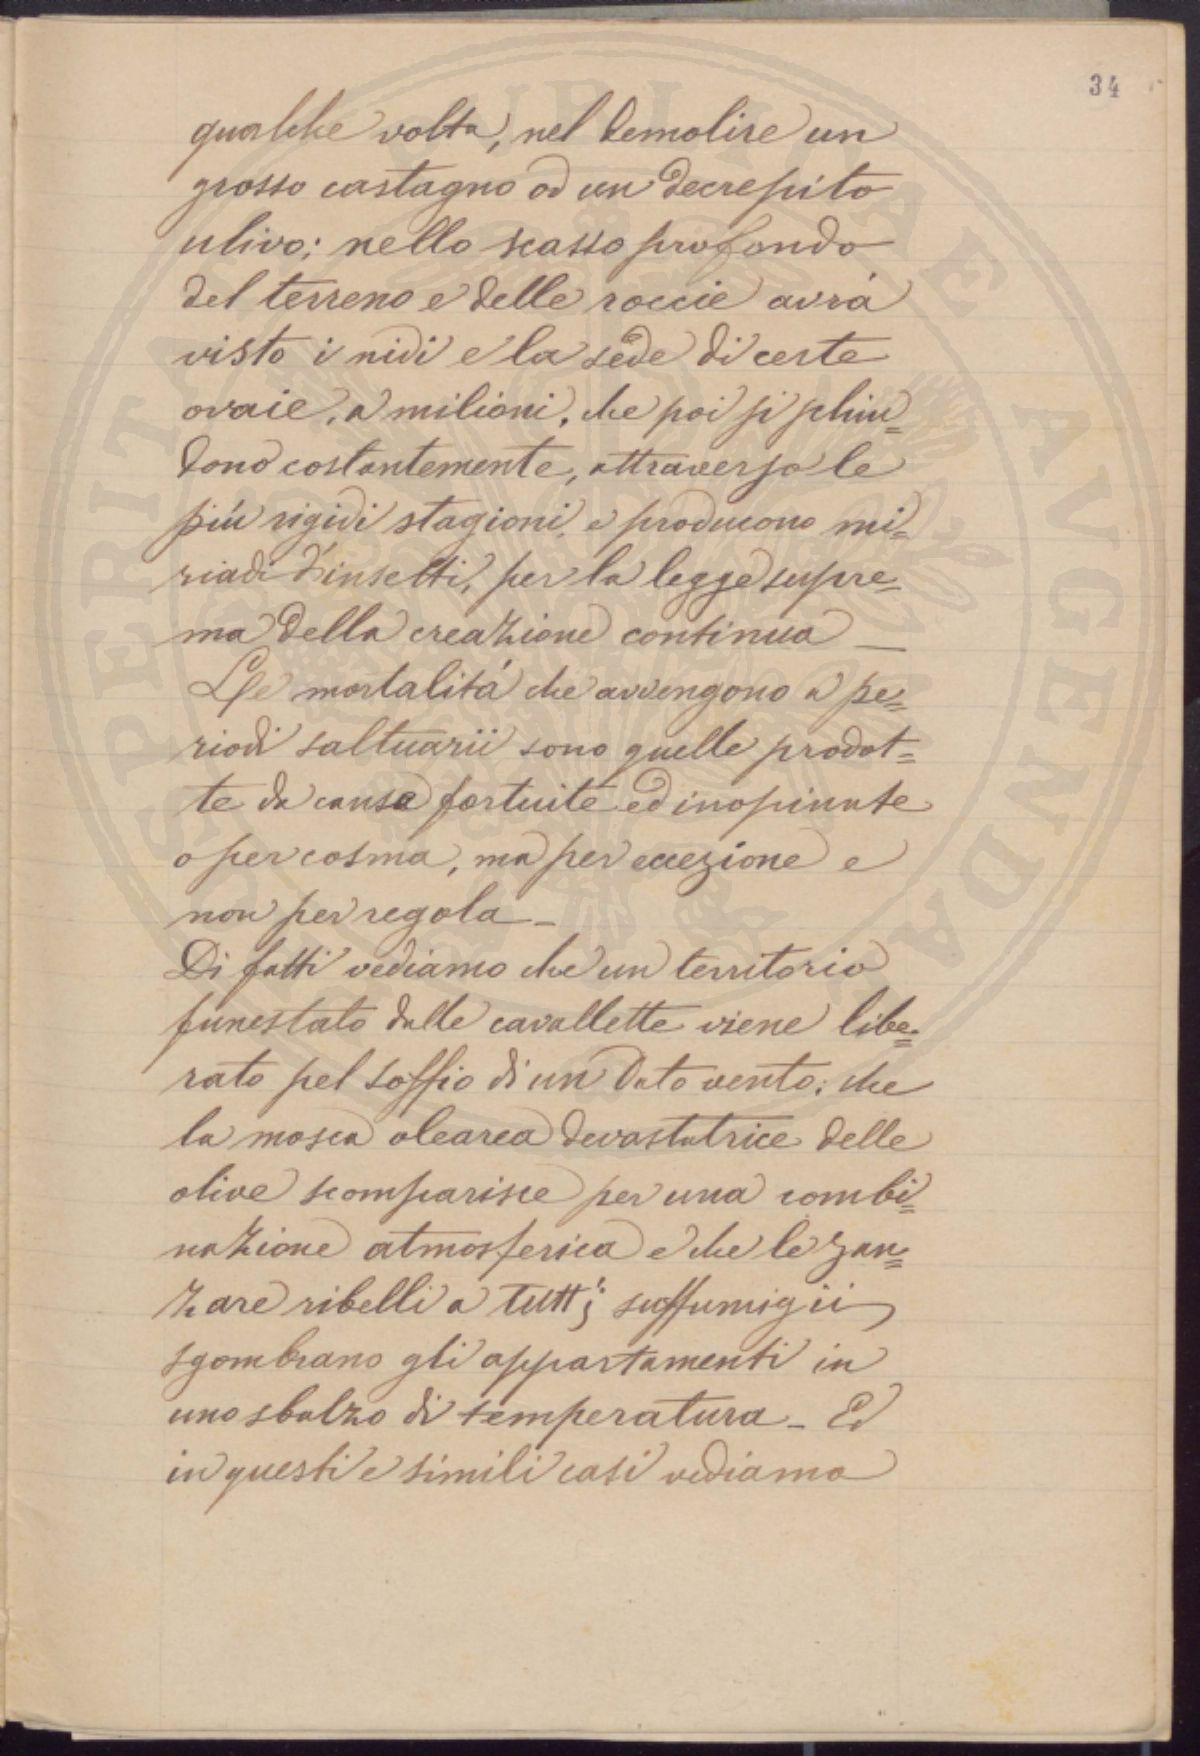 34
qualche volta, nel demolire un
grosso castagno od un decrepito
ulivo; nello scasso profondo
del terreno e delle roccie avrá
visto i nidi e la sede di certe
ovaie, a milioni, che poi si schiu=
dono costantemente, attraverso le
piú rigidi stagioni, e producono mi=
riadi d'insetti, per la legge supre=
ma della creazione continua _
Le mortalitá che avvengono a pe=
riodi saltuarii sono quelle prodot=
te da cause fortuite ed inopinate
o per cosma, ma per eccezione e
non per regola _
Di fatti vediamo che un territorio
funestato dalle cavallette viene libe=
rato pel soffio di un dato vento; che
la mosca olearea devastatrice delle
olive scomparisce per una combi=
nazione atmosferica e che le zan=
zare ribelli a tutti; suffumigii
sgombrano gli appartamenti in
uno sbalzo di temperatura _ Ed
in questi e simili casi vediamo